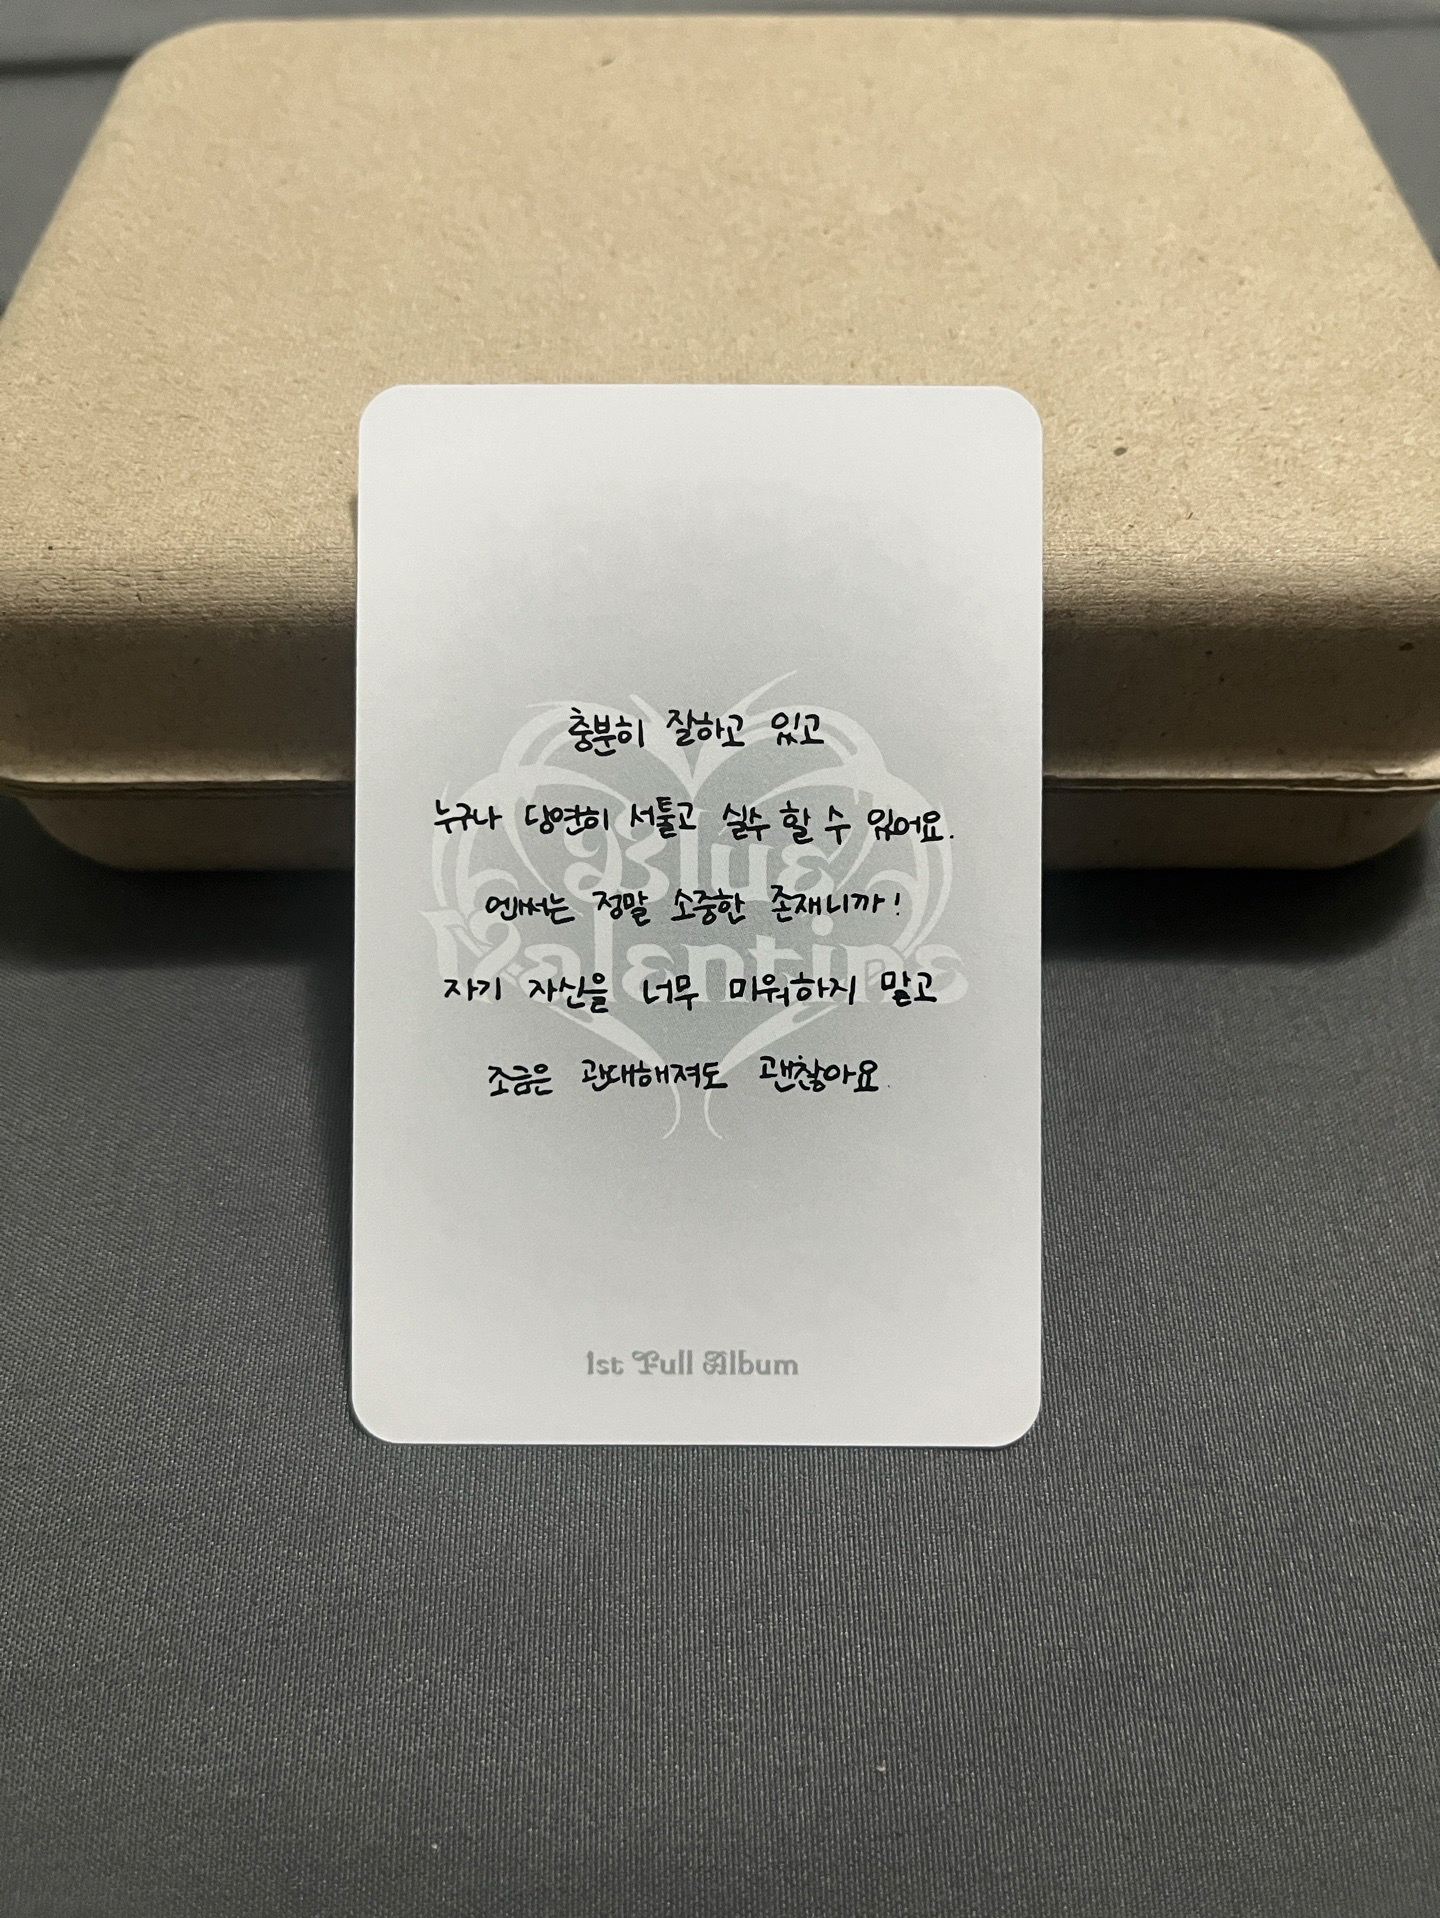 충분히 잘하고 있고
누구나 당연히 서툴고 실수 할 수 있어요.
엔써는 정말 소중한 존재니까!
자기 자신을 너무 미워하지 말고
조금은 관대해져도 괜찮아요.
Blue
Valentine
1st Full Album